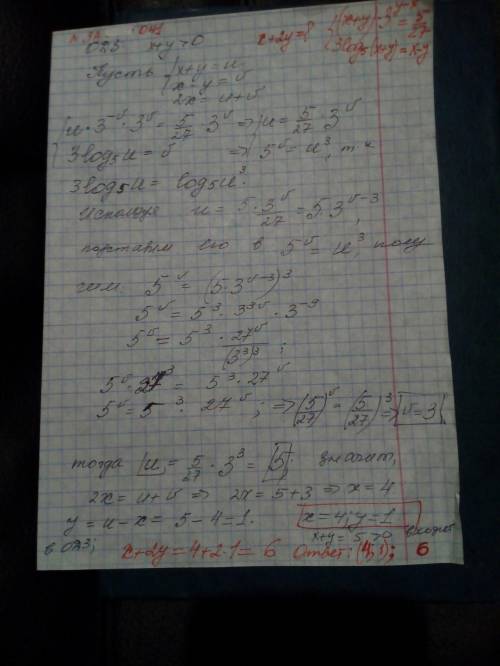 x+2y=? { (x+y)·3^{y-x} = 5/27
3log₅(x+y)=x-y
ОДЗ x+y>0
Пусть { x+y=u
x-y=v
2x=u+v
{ u·3^{-v}·3^v = 5/27·3^v => { u = 5/27·3^v
3log₅u=v => 5^v = u³, т.к
3log₅u = log₅u³.
Используя u = 5·3^v/27 = 5·3^{v-3},
подставим его в 5^v = u³, полу
чим 5^v = (5·3^{v-3})³
5^v = 5³·3^{3v}·3^{-9}
5^v = 5³·27^v/(3³)³;
5^v·27³ = 5³·27^v
5^v = 5³·27^v; => (5/27)^v = (5/27)³ => v=3
тогда u = 5/27·3³ = 5; значит,
2x=u+v => 2x=5+3 => x=4
y=u-x=5-4=1. x=4; y=1
x+y=5>0 входит
в ОДЗ;
x+2y=4+2·1=6 Ответ: (4;1); 6